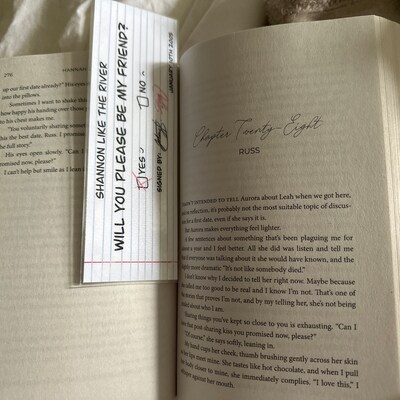 270 HANNAH
up our first date already?" His eyes
into the pillows.
Sometimes I want to shake
how happy his handing over those
to his chest makes me.
"You voluntarily sharing
the best date, Russ. I
the full story."
His eyes open slowly. "Can I
promised now, please?"
I can't help but smile as I lean
SHANNON LIKE THE RIVER
WILL YOU PLEASE BE MY FRIEND?
YES NO
SIGNED BY:
JANUARY 10TH 2005
Chapter Twenty-Eight
RUSS
INTENDED TO TELL Aurora about Leah when we got here,
reflection, it's probably not the most suitable topic of discus-
for a first date, even if she says it is.
Aurora makes everything feel lighter.
few sentences about something that's been plaguing me for
a year and I feel better. All she did was listen and tell me
everyone was talking about it she would have known, and the
more dramatic "It's not like somebody died."
don't know why I decided to tell her right now. Maybe because
called me too good to be real and I know I'm not. That's one of
stories that proves I'm not, and by telling her, she's not being
about who I am.
things you've kept so close to you is exhausting. "Can I
that post-sharing kiss you promised now, please?"
"Of course," she says softly, leaning in.
hand cups her cheek, thumb brushing gently across her skin
lips meet mine. She tastes like hot chocolate, and when I pull
body closer to me, she immediately complies. "I love this," I
against her mouth.